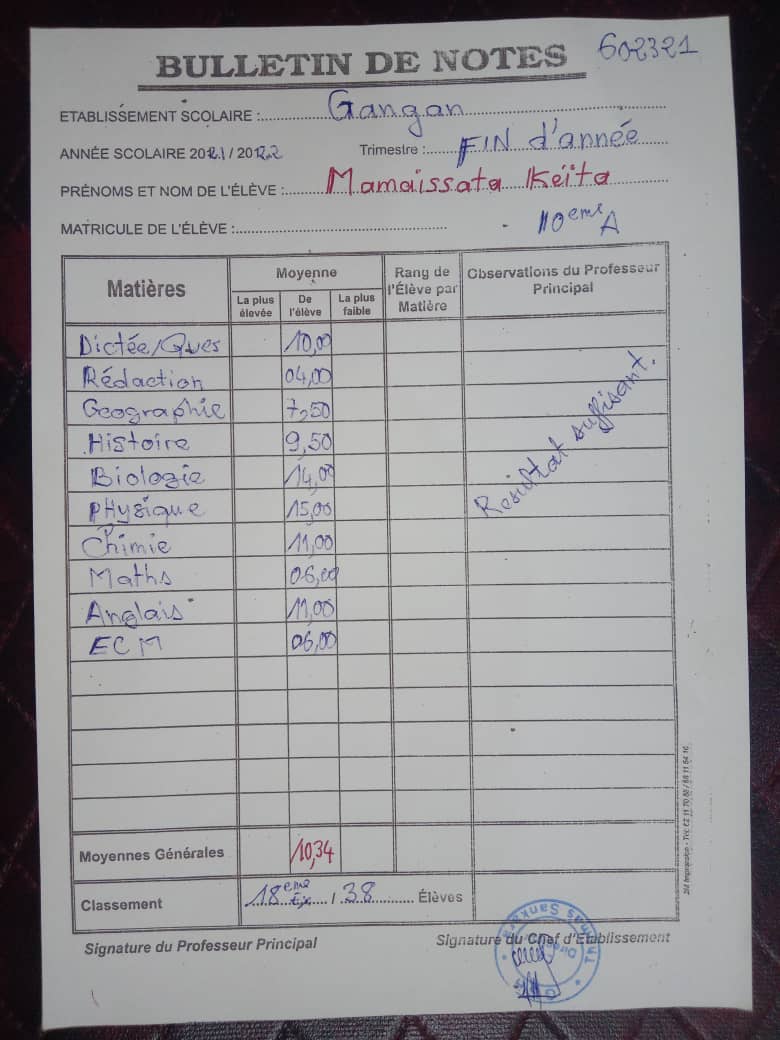 BULLETIN DE NOTES 602321
ETABLISSEMENT SCOLAIRE : Gangan
ANNÉE SCOLAIRE 2021 / 2022 Trimestre : FIN d'année
PRÉNOMS ET NOM DE L'ÉLÈVE : Mamaissata Keïta
MATRICULE DE L'ÉLÈVE : 10eme A
Matières Moyenne Rang de l'Élève par Matière Observations du Professeur Principal
La plus élevée De l'élève La plus faible
Dictée/Ques 10,00
Rédaction 04,00
Geographie 7,50
Histoire 9,50
Biologie 14,00
PHysique 15,00
Chimie 11,00
Maths 06,00
Anglais 11,00
ECM 06,00
Resultat suffisant.
Moyennes Générales 10,34
Classement 18eme / 38 Élèves
Signature du Professeur Principal Signature du Chef d'Etablissement
Thomas Sankara